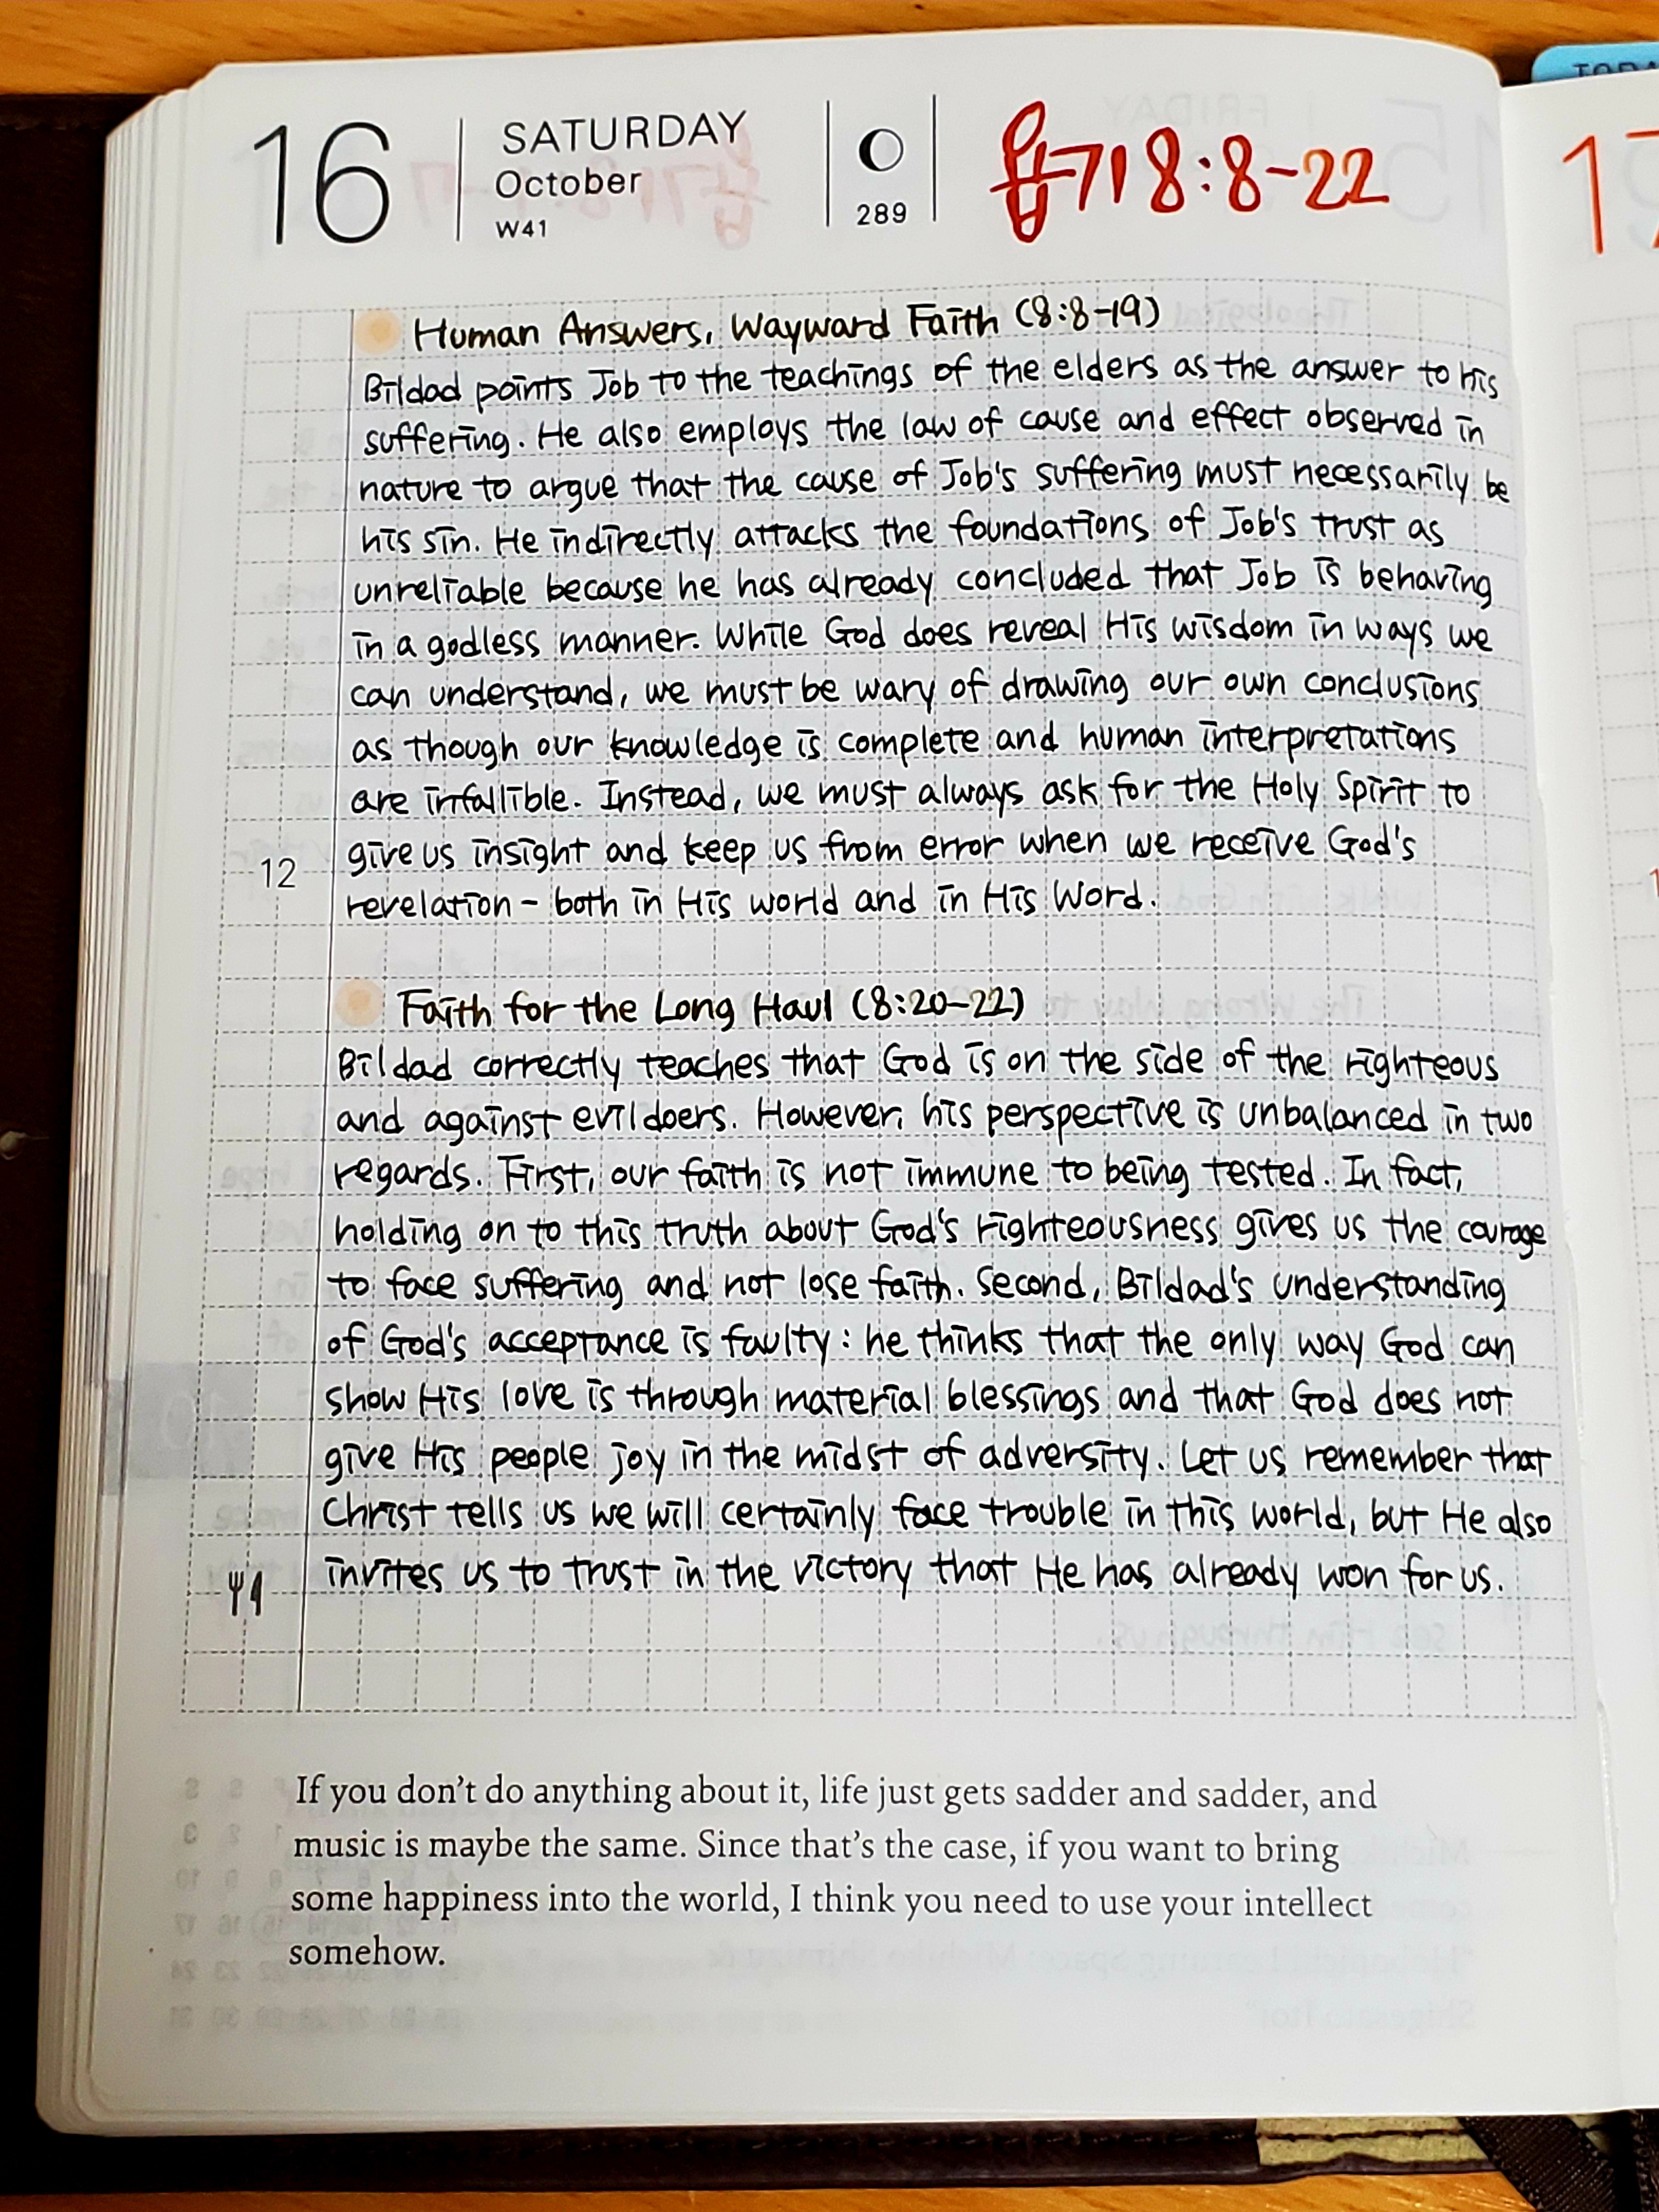 16
SATURDAY
October
W41
289
욥기 8:8-22
Human Answers, Wayward Faith (8:8-19)
Bildad points Job to the teachings of the elders as the answer to his
suffering. He also employs the law of cause and effect observed in
nature to argue that the cause of Job's suffering must necessarily be
his sin. He indirectly attacks the foundations of Job's trust as
unreliable because he has already concluded that Job is behaving
in a godless manner. While God does reveal His wisdom in ways we
can understand, we must be wary of drawing our own conclusions
as though our knowledge is complete and human interpretations
are infallible. Instead, we must always ask for the Holy Spirit to
give us insight and keep us from error when we receive God's
12
revelation - both in His world and in His Word.
Faith for the Long Haul (8:20-22)
Bildad correctly teaches that God is on the side of the righteous
and against evildoers. However, his perspective is unbalanced in two
regards. First, our faith is not immune to being tested. In fact,
holding on to this truth about God's righteousness gives us the courage
to face suffering and not lose faith. Second, Bildad's understanding
of God's acceptance is faulty: he thinks that the only way God can
show His love is through material blessings and that God does not
give His people joy in the midst of adversity. Let us remember that
Christ tells us we will certainly face trouble in this world, but He also
invites us to trust in the victory that He has already won for us.
If you don't do anything about it, life just gets sadder and sadder, and
music is maybe the same. Since that's the case, if you want to bring
some happiness into the world, I think you need to use your intellect
somehow.